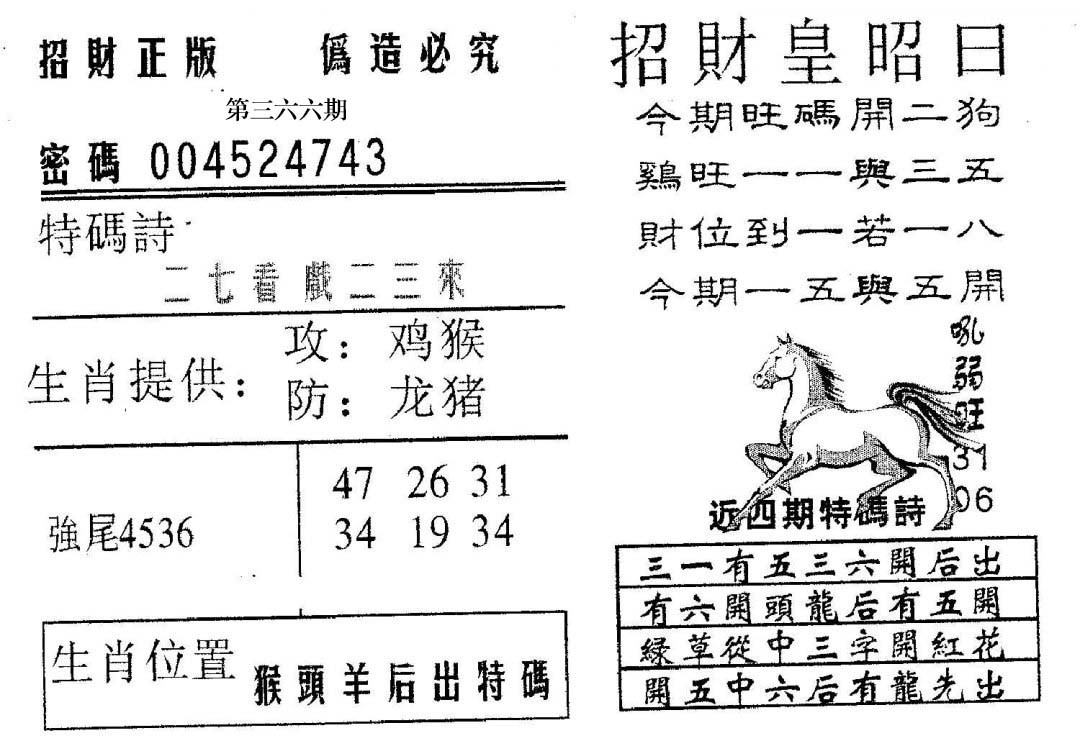 招財正版 僞造必究
第三六六期
密碼 004524743
特碼詩
二七看戲二三來
生肖提供：
攻：鸡猴
防：龙猪
強尾4536
47 26 31
34 19 34
生肖位置 猴頭羊后出特碼
招財皇昭日
今期旺碼開二狗
鷄旺一一與三五
財位到一若一八
今期一五與五開
吼弱旺
31
06
近四期特碼詩
三一有五三六開后出
有六開頭龍后有五開
緑草從中三字開紅花
開五中六后有龍先出